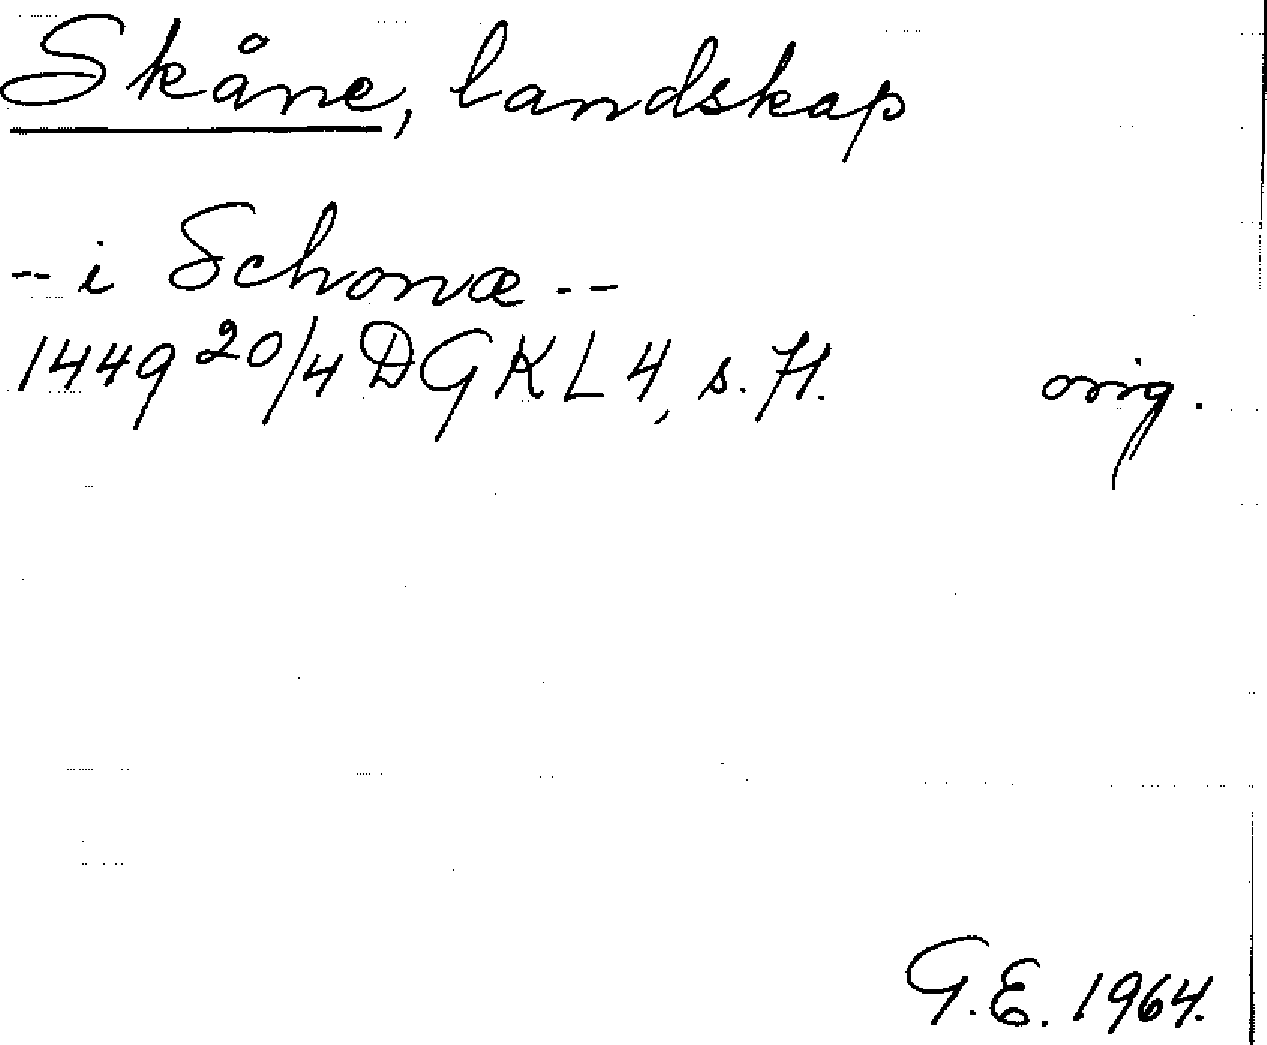 Skåne, landskap
-- i Schonæ --
1449 20/4 DGKL 4, s. 71. orig.
G.E. 1964.